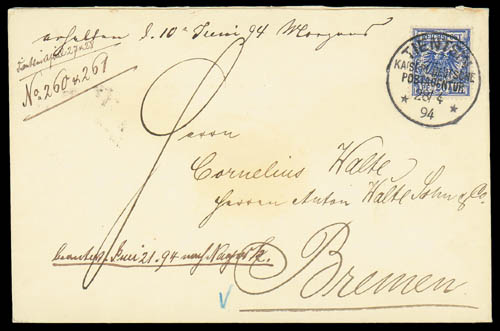 erhalten d. 10n Juni 94 Morgens
Tientsin April 27 & 28
No. 260 & 261
TIENTSIN
KAISERL. DEUTSCHE
POSTAGENTUR
28/4
94
Herrn
Cornelius Walte
Herren Anton Walte Sohn & Co.
beantw. Juni 21. 94 nach
Bremen